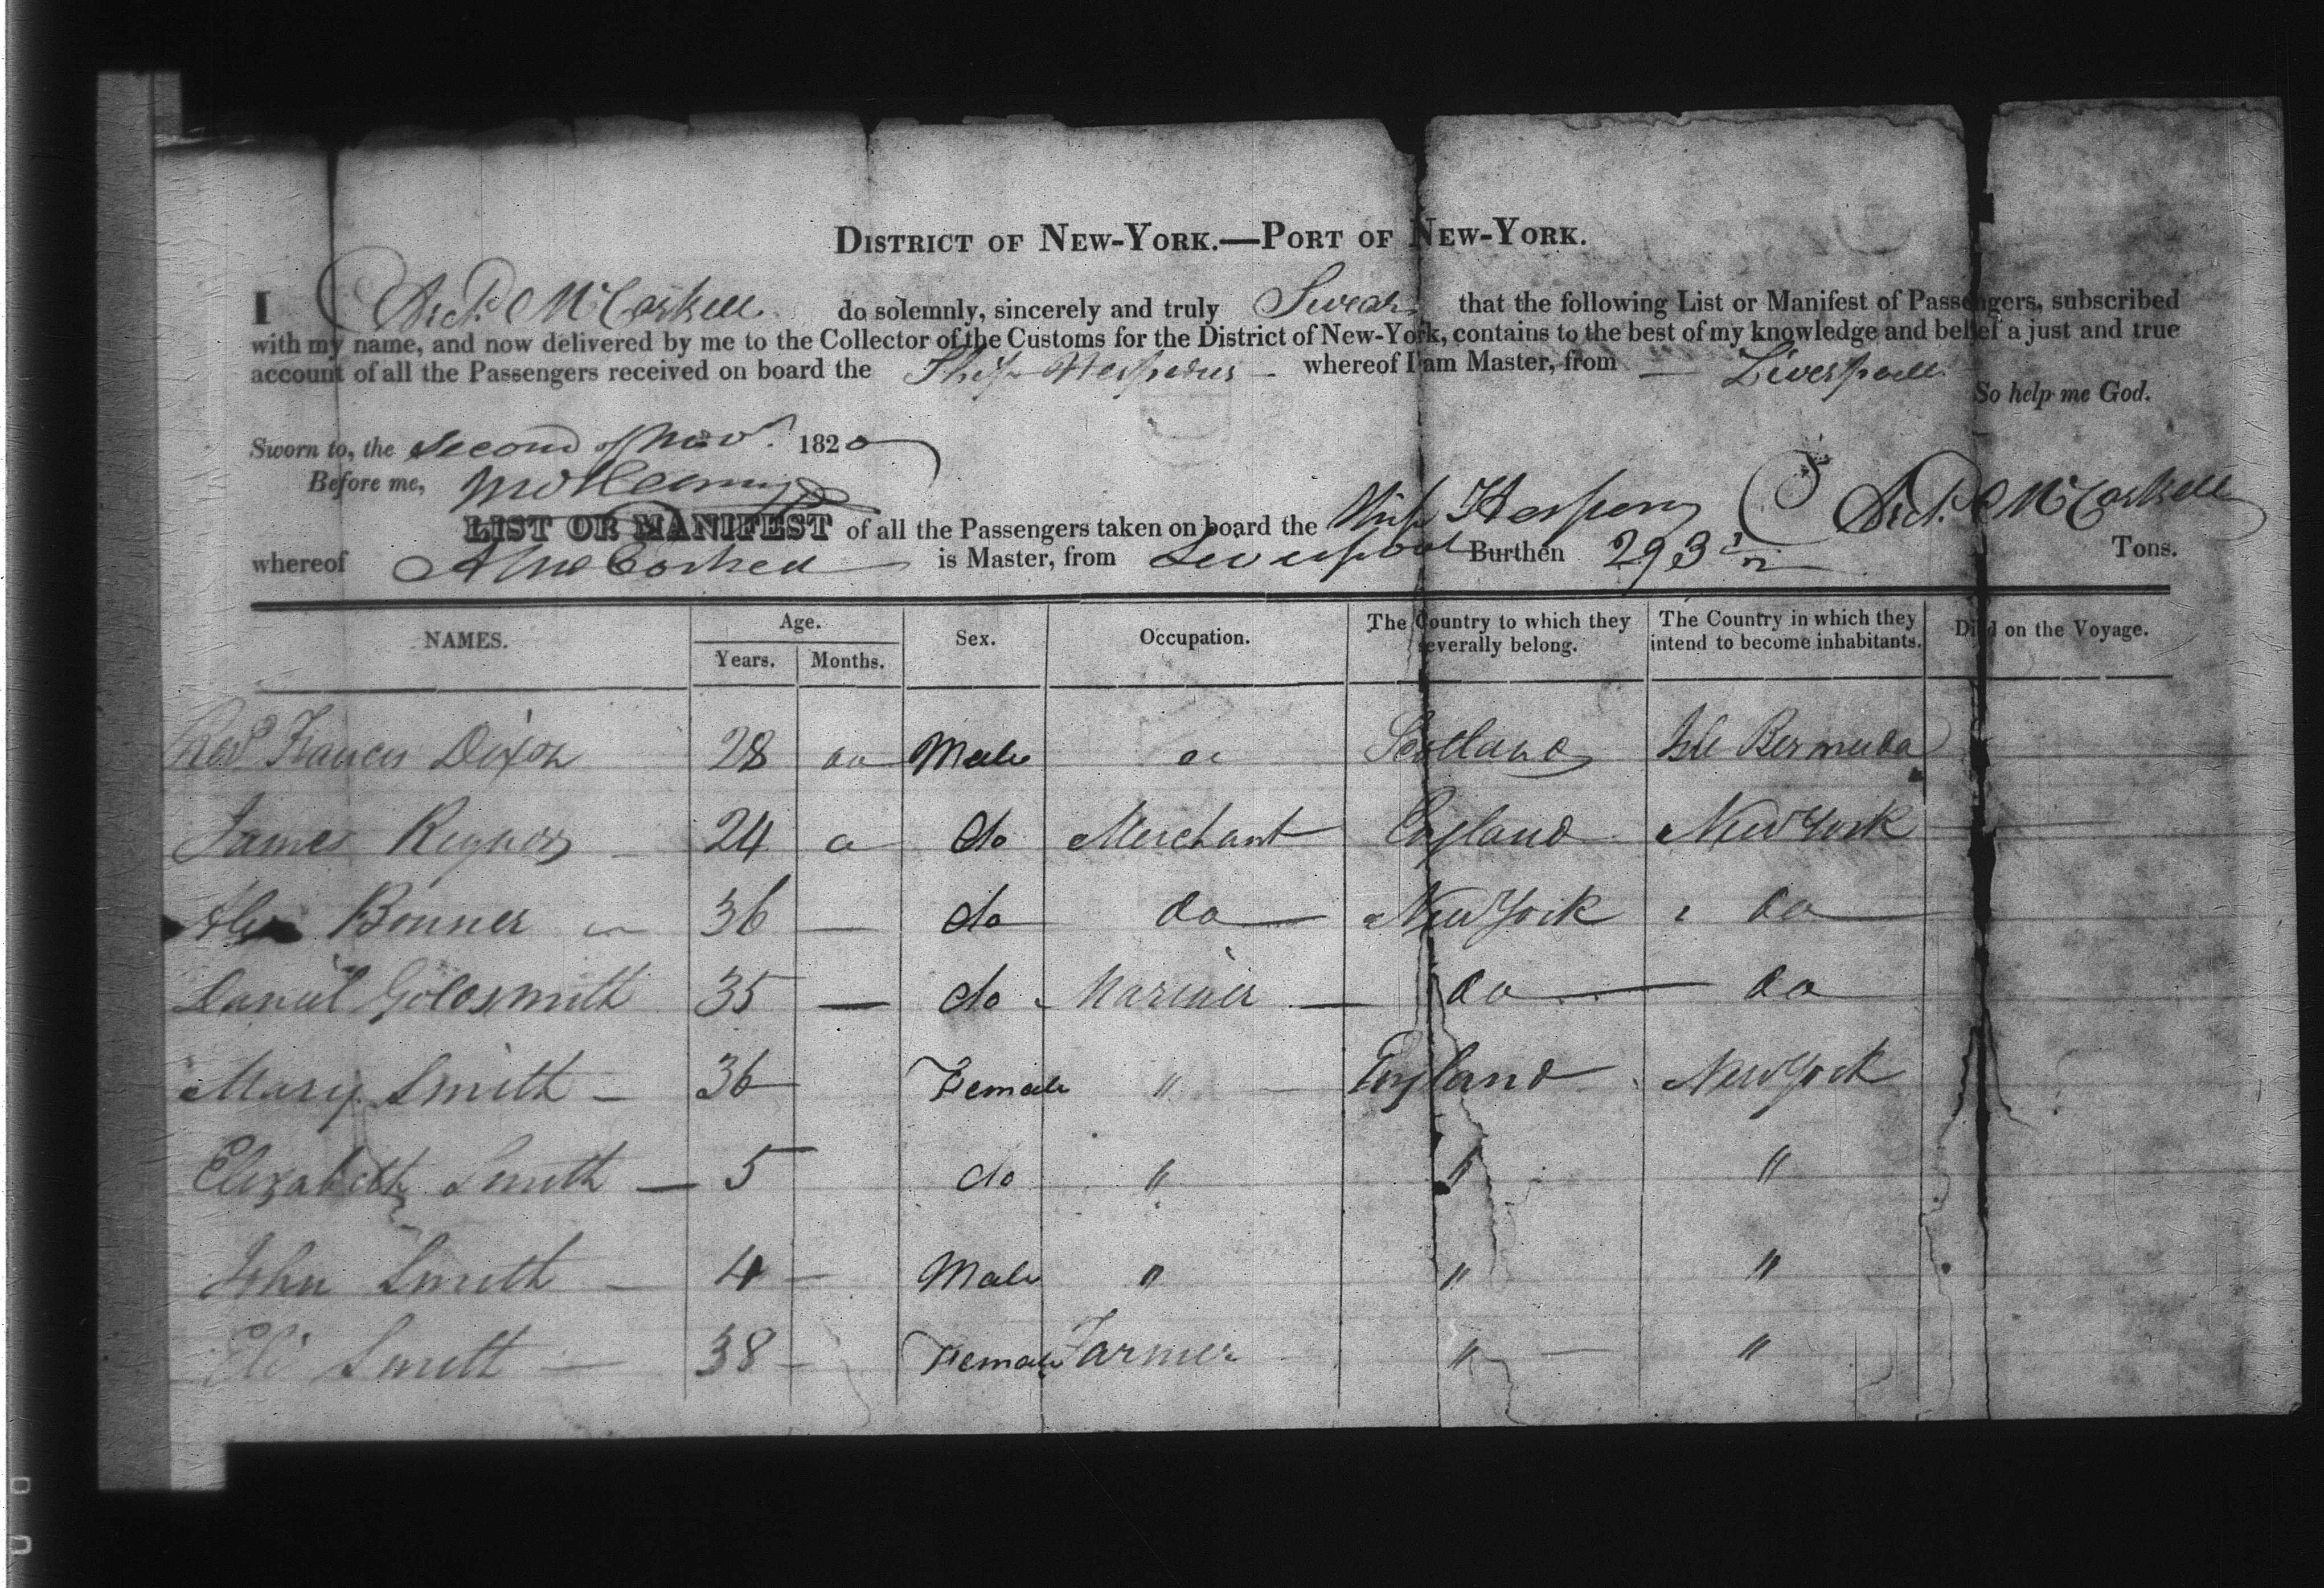 DISTRICT OF NEW-YORK.—PORT OF NEW-YORK.
I Archd McCorkell do solemnly, sincerely and truly Swear that the following List or Manifest of Passengers, subscribed
with my name, and now delivered by me to the Collector of the Customs for the District of New-York, contains to the best of my knowledge and belief a just and true
account of all the Passengers received on board the Ship Hesperus — whereof I am Master, from — Liverpool
So help me God.
Sworn to, the Second of Novr. 1820
Before me,
Archd McCorkell
LIST OR MANIFEST of all the Passengers taken on board the Ship
whereof A McCorkell is Master, from Liverpool Burthen 293 Tons.
NAMES. Age. Years. Months. Sex. Occupation. The Country to which they severally belong. The Country in which they intend to become inhabitants. Died on the Voyage.
Revd Francis Dixon 28 Male Scotland Bermuda
James 24 do Merchant England New York
Bonner 36 — do do New York do
Daniel Goldsmith 35 — do Mariner — do — do
Mary Smith — 36 Female " England New York
Elizabeth Smith — 5 do " " "
John Smith — 4 — Male " " "
Eli Smith — 38 — Female Farmer " — "